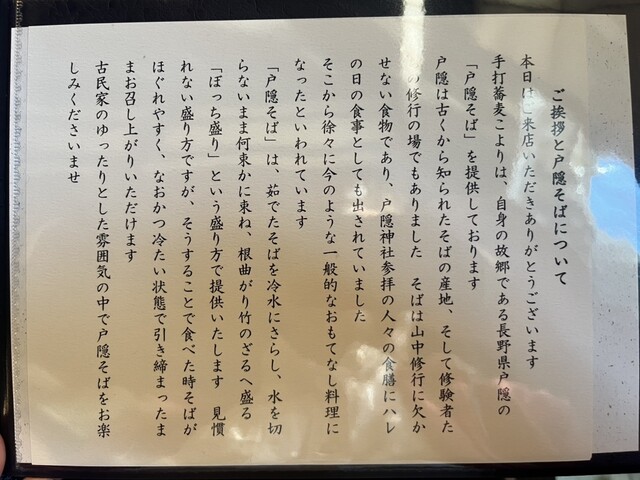 ご挨拶と戸隠そばについて
本日はご来店いただきありがとうございます
手打蕎麦こよりは、自身の故郷である長野県戸隠の
「戸隠そば」を提供しております
戸隠は古くから知られたそばの産地、そして修験者た
の修行の場でもありました そばは山中修行に欠か
せない食物であり、戸隠神社参拝の人々の食膳にハレ
の日の食事としても出されていました
そこから徐々に今のような一般的なおもてなし料理に
なったといわれています
「戸隠そば」は、茹でたそばを冷水にさらし、水を切
らないまま何束かに束ね、根曲がり竹のざるへ盛る
「ぼっち盛り」という盛り方で提供いたします 見慣
れない盛り方ですが、そうすることで食べた時そばが
ほぐれやすく、なおかつ冷たい状態で引き締まったま
まお召し上がりいただけます
古民家のゆったりとした雰囲気の中で戸隠そばをお楽
しみくださいませ